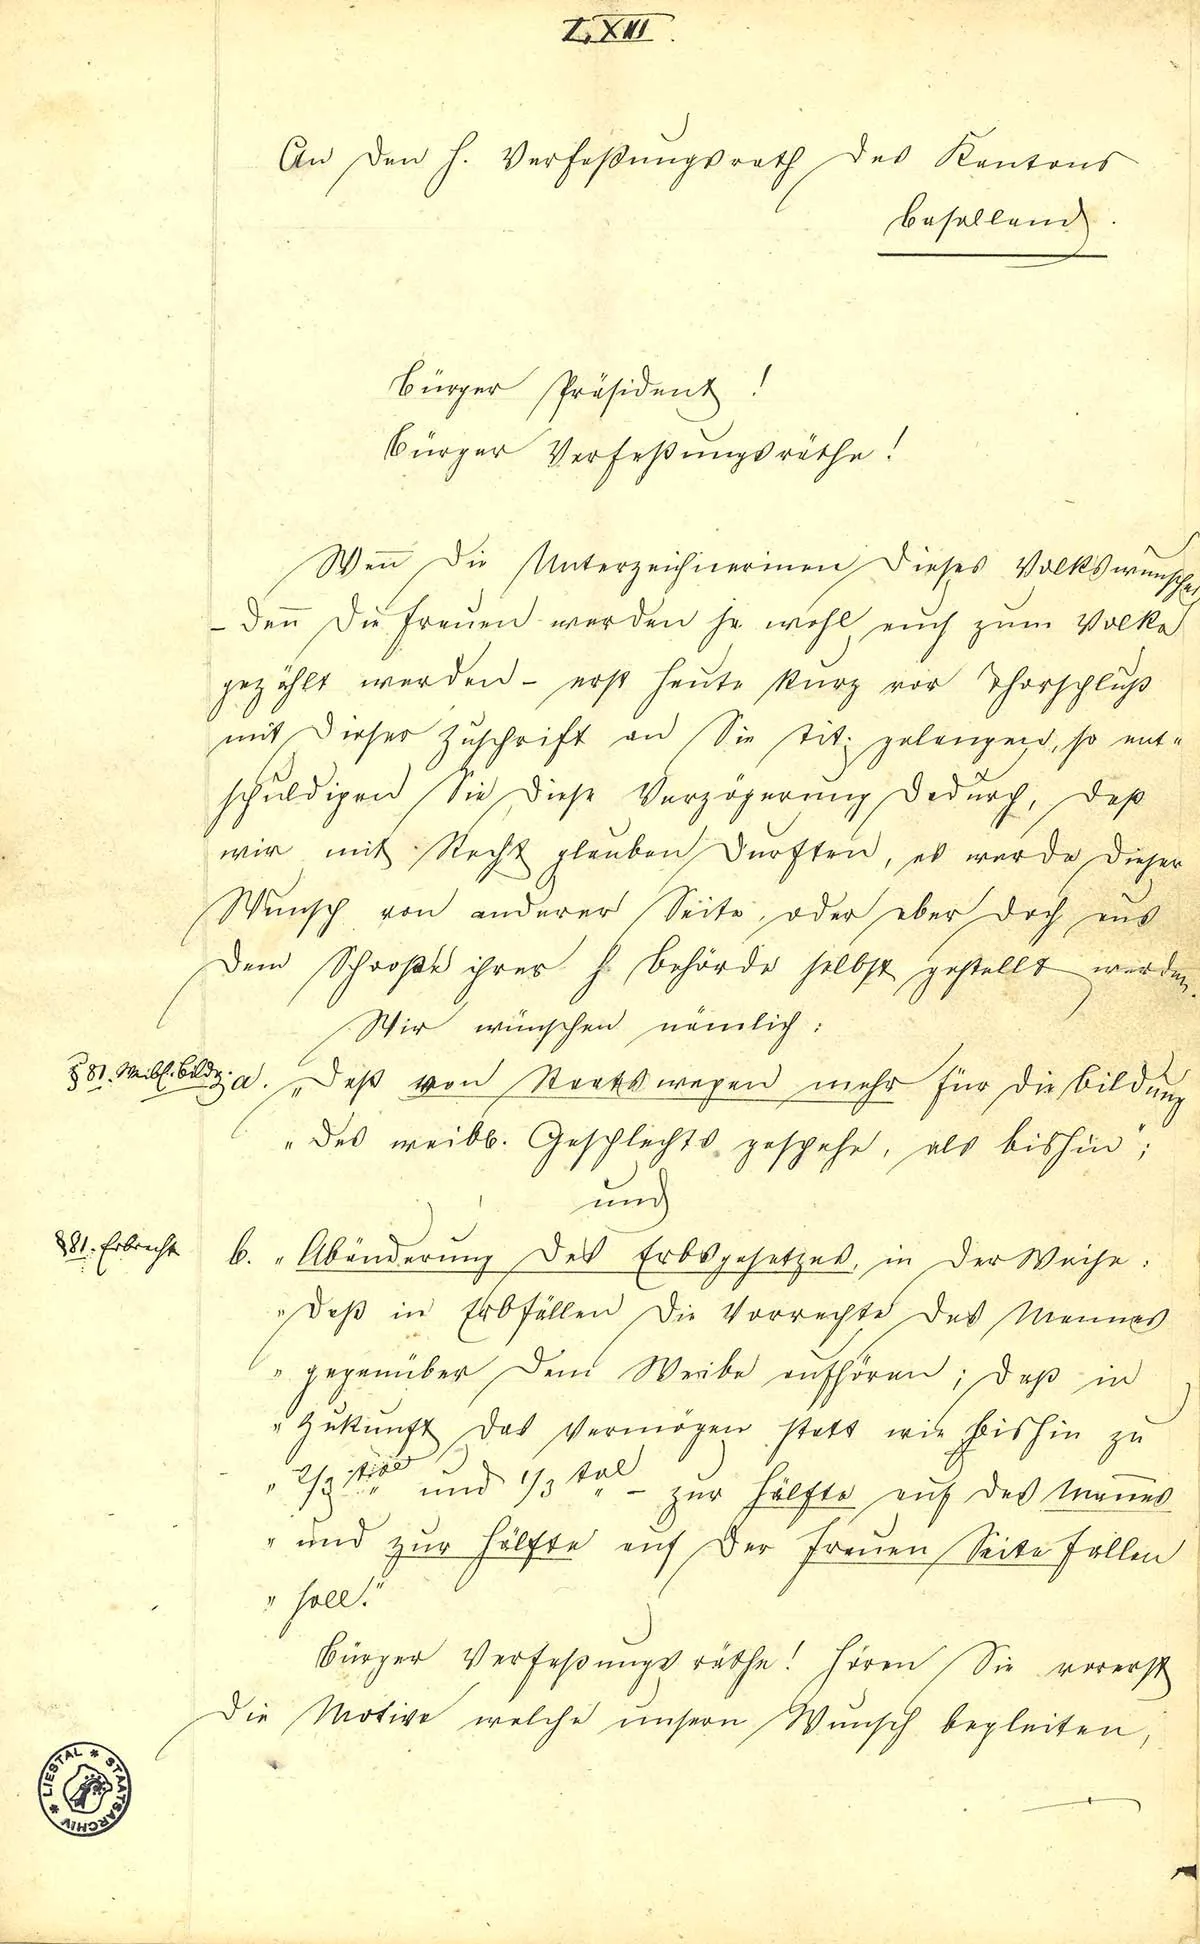 I, XIII.
An den h. Verfaßungsrath des Kantons
Baselland.
Bürger Präsident!
Bürger Verfaßungsräthe!
Weñ die Unterzeichnerinen dieses Volkswunsches
– deñ die Frauen werden ja wohl auch zum Volke
gezählt werden – erst heute kurz vor Thorschluß
mit dieser Zuschrift an Sie tit. gelangen, so ent=
schuldigen Sie diese Verzögerung dadurch, daß
wir mit Recht glauben durften, es werde dieser
Wunsch von anderer Seite, oder aber doch aus
dem Schooße ihrer h. Behörde selbst gestellt werden.
Wir wünschen nämlich:
§ 81. Weibl. Bildg.
a. „Daß von Staatswegen mehr für die Bildung
„des weibl. Geschlechts geschehe, als bishin";
und
§ 81. Erbrecht
b. „Abänderung des Erbsgesetzes, in der Weise:
„daß in Erbfällen die Vorrechte des Mannes
„gegenüber dem Weibe aufhören; daß in
„Zukunft das Vermögen statt wie bishin zu
„2/3 und 1/3 tel – zur Hälfte auf des Mañes
„und zur Hälfte auf der Frauen Seite fallen
„soll."
Bürger Verfaßungsräthe! Hören Sie vorerst
die Motive welche unsern Wunsch begleiten,
LIESTAL * STAATSARCHIV *